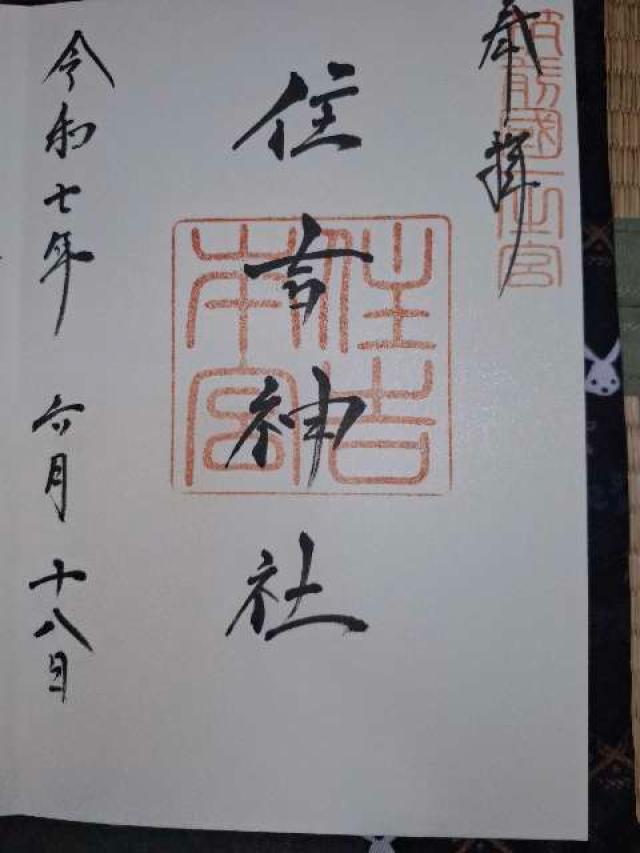 奉拝
筑前國一之宮
住吉神社
住吉本宮
令和七年 六月十八日